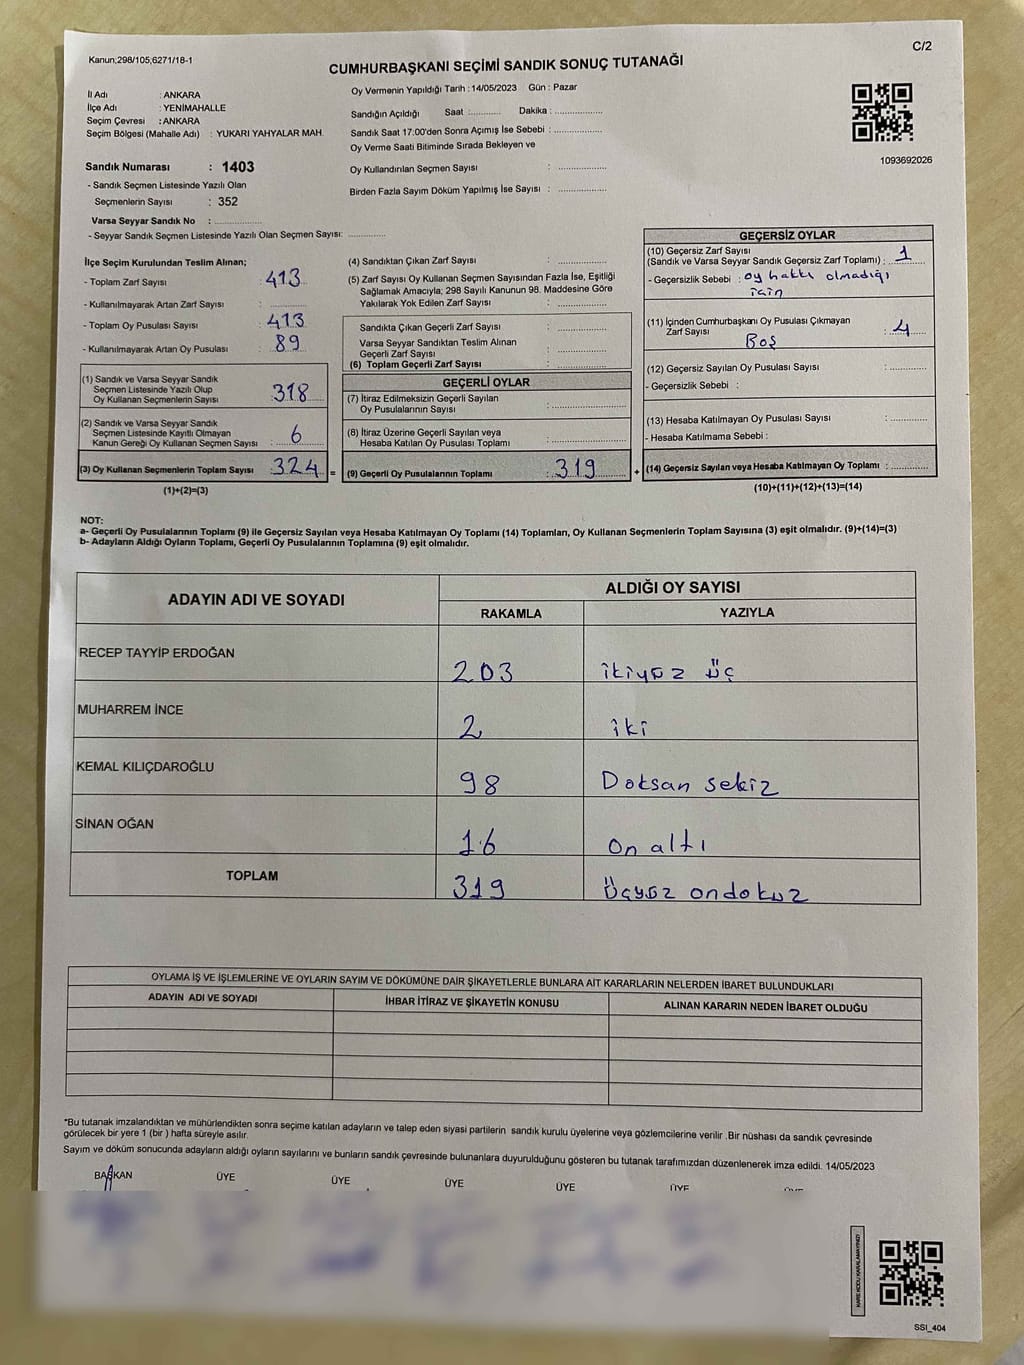 Kanun;298/105;6271/18-1
C/2
CUMHURBAŞKANI SEÇİMİ SANDIK SONUÇ TUTANAĞI
İl Adı : ANKARA
İlçe Adı : YENİMAHALLE
Seçim Çevresi : ANKARA
Seçim Bölgesi (Mahalle Adı) : YUKARI YAHYALAR MAH.
Sandık Numarası : 1403
- Sandık Seçmen Listesinde Yazılı Olan
Seçmenlerin Sayısı : 352
Varsa Seyyar Sandık No : ................
- Seyyar Sandık Seçmen Listesinde Yazılı Olan Seçmen Sayısı: ............
Oy Vermenin Yapıldığı Tarih : 14/05/2023 Gün : Pazar
Sandığın Açıldığı Saat :........... Dakika :................
Sandık Saat 17:00'den Sonra Açımış İse Sebebi :................
Oy Verme Saati Bitiminde Sırada Bekleyen ve
Oy Kullandırılan Seçmen Sayısı : ................
Birden Fazla Sayım Döküm Yapılmış İse Sayısı : ................
1093692026
İlçe Seçim Kurulundan Teslim Alınan;
- Toplam Zarf Sayısı : 413
- Kullanılmayarak Artan Zarf Sayısı : ............
- Toplam Oy Pusulası Sayısı : 413
- Kullanılmayarak Artan Oy Pusulası : 89
(1) Sandık ve Varsa Seyyar Sandık
Seçmen Listesinde Yazılı Olup
Oy Kullanan Seçmenlerin Sayısı : 318
(2) Sandık ve Varsa Seyyar Sandık
Seçmen Listesinde Kayıtlı Olmayan
Kanun Gereği Oy Kullanan Seçmen Sayısı : 6
(3) Oy Kullanan Seçmenlerin Toplam Sayısı : 324 =
(1)+(2)=(3)
(4) Sandıktan Çıkan Zarf Sayısı : ................
(5) Zarf Sayısı Oy Kullanan Seçmen Sayısından Fazla İse, Eşitliği
Sağlamak Amacıyla; 298 Sayılı Kanunun 98. Maddesine Göre
Yakılarak Yok Edilen Zarf Sayısı : ................
Sandıkta Çıkan Geçerli Zarf Sayısı : ................
Varsa Seyyar Sandıktan Teslim Alınan
Geçerli Zarf Sayısı : ................
(6) Toplam Geçerli Zarf Sayısı : ................
GEÇERLİ OYLAR
(7) İtiraz Edilmeksizin Geçerli Sayılan
Oy Pusulalarının Sayısı : ................
(8) İtiraz Üzerine Geçerli Sayılan veya
Hesaba Katılan Oy Pusulası Toplamı : ................
(9) Geçerli Oy Pusulalarının Toplamı : 319 +
GEÇERSİZ OYLAR
(10) Geçersiz Zarf Sayısı
(Sandık ve Varsa Seyyar Sandık Geçersiz Zarf Toplamı) : 1
- Geçersizlik Sebebi : oy hakkı olmadığı
için
(11) İçinden Cumhurbaşkanı Oy Pusulası Çıkmayan
Zarf Sayısı : 4
Boş
(12) Geçersiz Sayılan Oy Pusulası Sayısı : ............
- Geçersizlik Sebebi :
(13) Hesaba Katılmayan Oy Pusulası Sayısı : ............
- Hesaba Katılmama Sebebi :
(14) Geçersiz Sayılan veya Hesaba Katılmayan Oy Toplamı : ............
(10)+(11)+(12)+(13)=(14)
NOT:
a- Geçerli Oy Pusulalarının Toplamı (9) ile Geçersiz Sayılan veya Hesaba Katılmayan Oy Toplamı (14) Toplamları, Oy Kullanan Seçmenlerin Toplam Sayısına (3) eşit olmalıdır. (9)+(14)=(3)
b- Adayların Aldığı Oyların Toplamı, Geçerli Oy Pusulalarının Toplamına (9) eşit olmalıdır.
ADAYIN ADI VE SOYADI
ALDIĞI OY SAYISI
RAKAMLA YAZIYLA
RECEP TAYYİP ERDOĞAN 203 ikiyüz üç
MUHARREM İNCE 2 iki
KEMAL KILIÇDAROĞLU 98 Doksan sekiz
SİNAN OĞAN 16 on altı
TOPLAM 319 Üçyüz ondokuz
OYLAMA İŞ VE İŞLEMLERİNE VE OYLARIN SAYIM VE DÖKÜMÜNE DAİR ŞİKAYETLERLE BUNLARA AİT KARARLARIN NELERDEN İBARET BULUNDUKLARI
ADAYIN ADI VE SOYADI İHBAR İTİRAZ VE ŞİKAYETİN KONUSU ALINAN KARARIN NEDEN İBARET OLDUĞU
*Bu tutanak imzalandıktan ve mühürlendikten sonra seçime katılan adayların ve talep eden siyasi partilerin sandık kurulu üyelerine veya gözlemcilerine verilir .Bir nüshası da sandık çevresinde
görülecek bir yere 1 (bir ) hafta süreyle asılır.
Sayım ve döküm sonucunda adayların aldığı oyların sayılarını ve bunların sandık çevresinde bulunanlara duyurulduğunu gösteren bu tutanak tarafımızdan düzenlenerek imza edildi. 14/05/2023
BAŞKAN ÜYE ÜYE ÜYE ÜYE ÜYE
KARE KODU KARALAMAYINIZ!
SSI_404